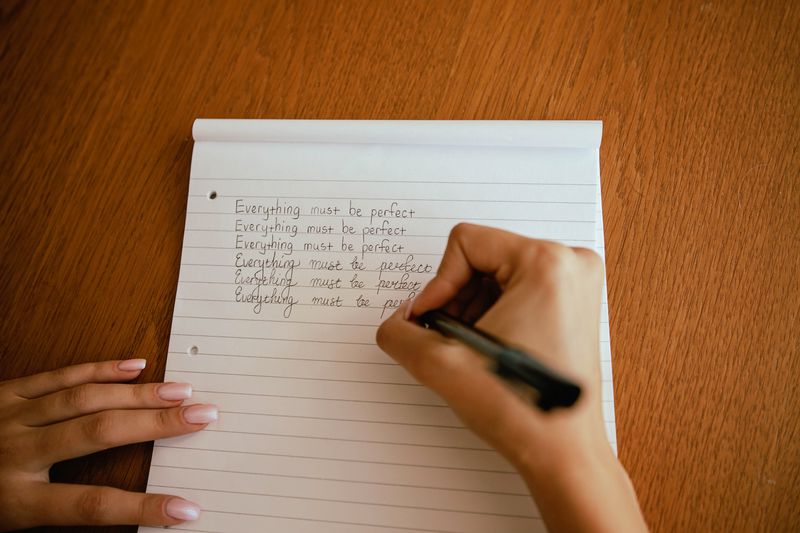 Everything must be perfect
Everything must be perfect
Everything must be perfect
Everything must be perfect
Everything must be perfect
Everything must be perf